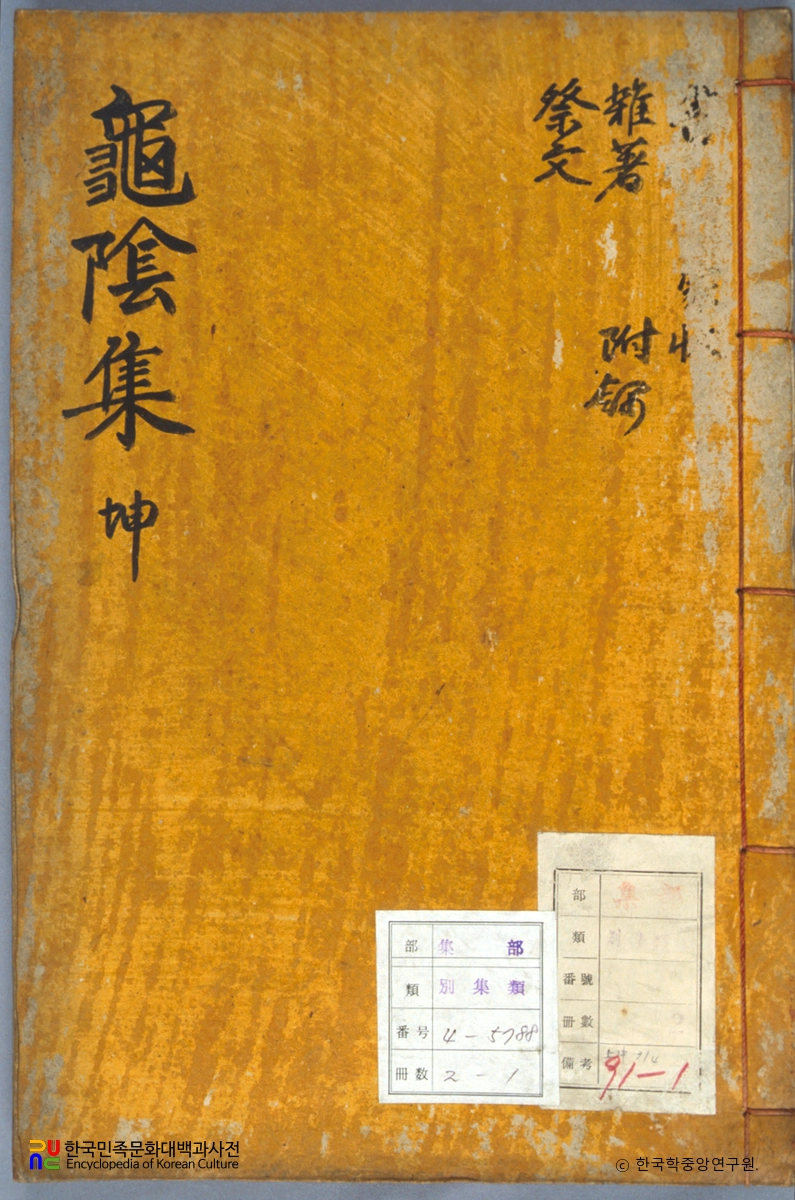 雜著
附錄
祭文
龜陰集 坤
部 集部
類 別集類
番号 4-5788
冊数 2-1
部 集部
類
番號
冊數
備考 91-1
한국민족문화대백과사전
Encyclopedia of Korean Culture
© 한국학중앙연구원.